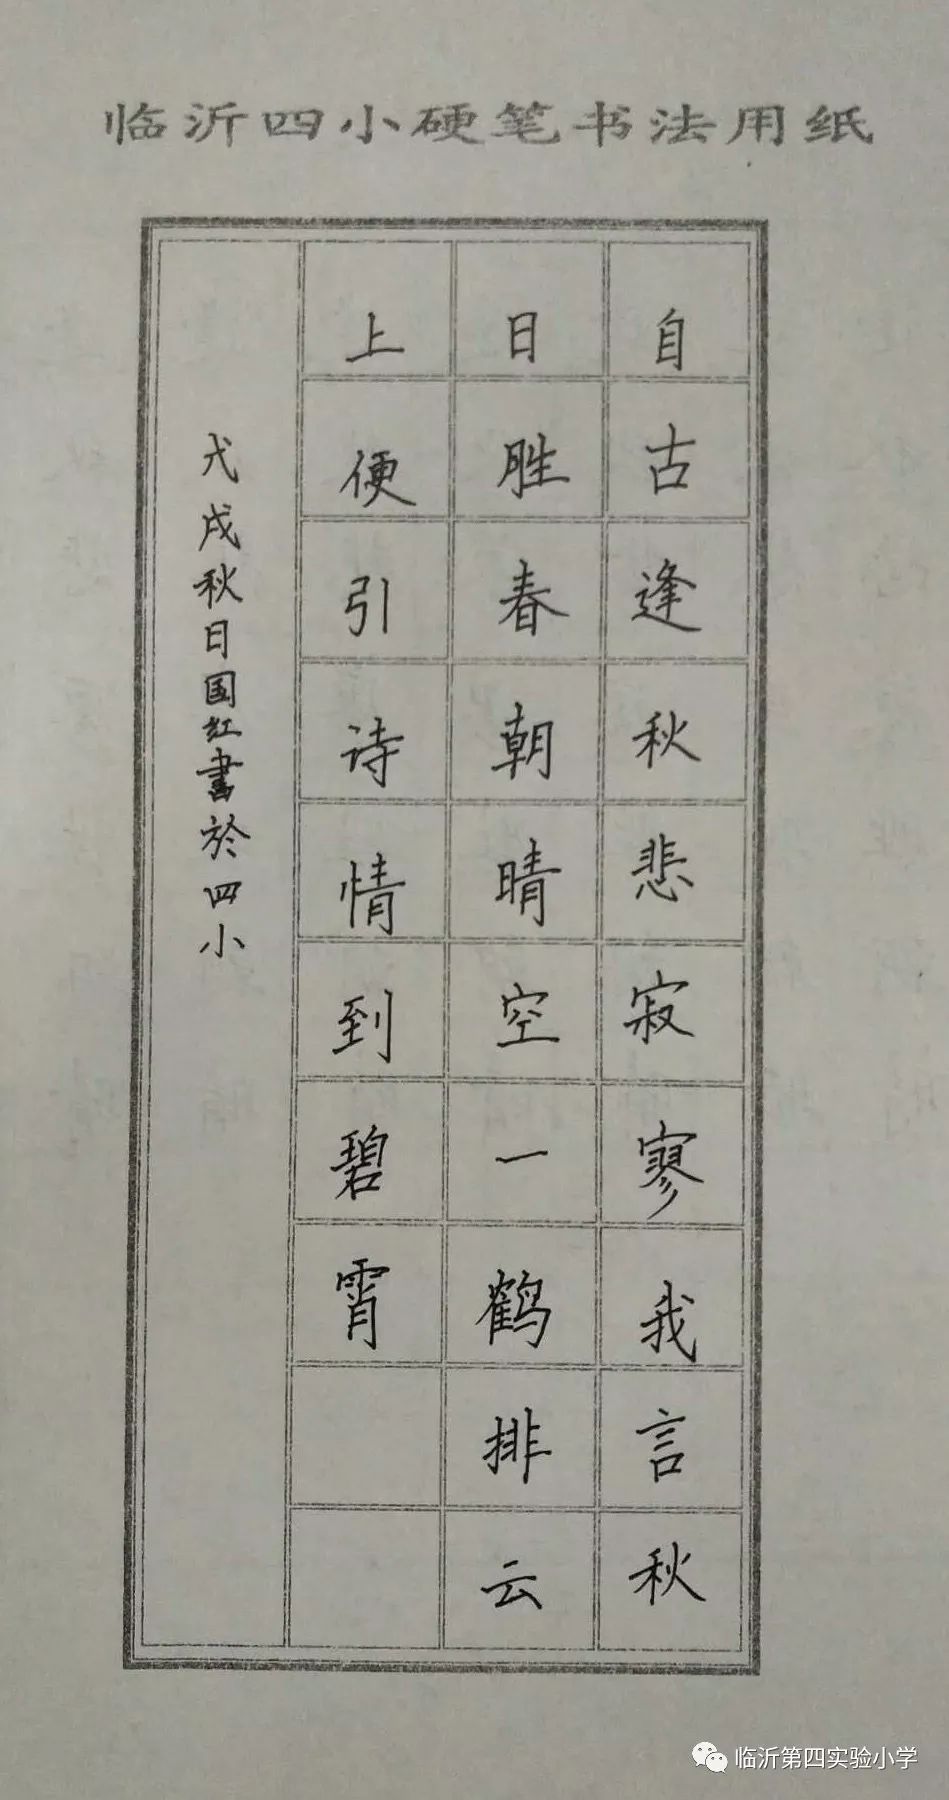 临沂四小硬笔书法用纸
自古逢秋悲寂寥我言秋
日胜春朝晴空一鹤排云
上便引诗情到碧霄
戊戌秋日国红書於四小
临沂第四实验小学